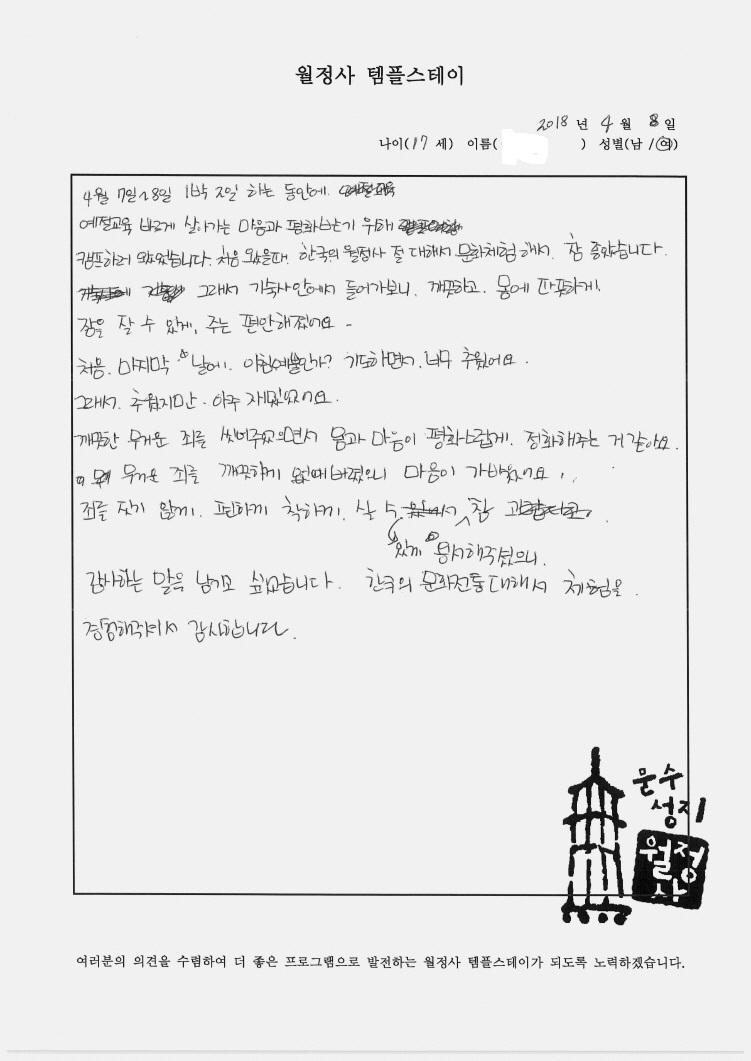 월정사 템플스테이
2018 년 4 월 8 일
나이(17 세) 이름( ) 성별(남 / 여)
4월 7일~8일 1박 2일 하는 동안에.
예절교육 바르게 살아가는 마음과 평화받기 위해
캠프하러 왔었습니다. 처음 왔을때. 한국의 월정사 절 대해서 문화체험 해서. 참 좋았습니다.
그래서 기숙사안에서 들어가보니. 깨끗하고. 몸에 따뜻하게.
잠을 잘 수 있게, 주는 편안해졌어요 -
처음. 마지막 날에. 아침예불인가? 기도하면서. 너무 추웠어요.
그래서. 추웠지만. 아주 재밌었어요.
깨끗한 무거운 죄를 씻어주었으면서 몸과 마음이 평화스럽게. 정화해주는 거 같아요.
무거운 죄를 깨끗하게 없애버렸으니 마음이 가벼웠어요..
죄를 짓기 않게. 편하게 착하게. 살 수 참
있게 용서해주셨으니.
감사하는 말을 남기고 싶었습니다. 한국의 문화전통대해서 체험을.
경험해주셔서 감사합니다.
문수
성지
월정
사
여러분의 의견을 수렴하여 더 좋은 프로그램으로 발전하는 월정사 템플스테이가 되도록 노력하겠습니다.